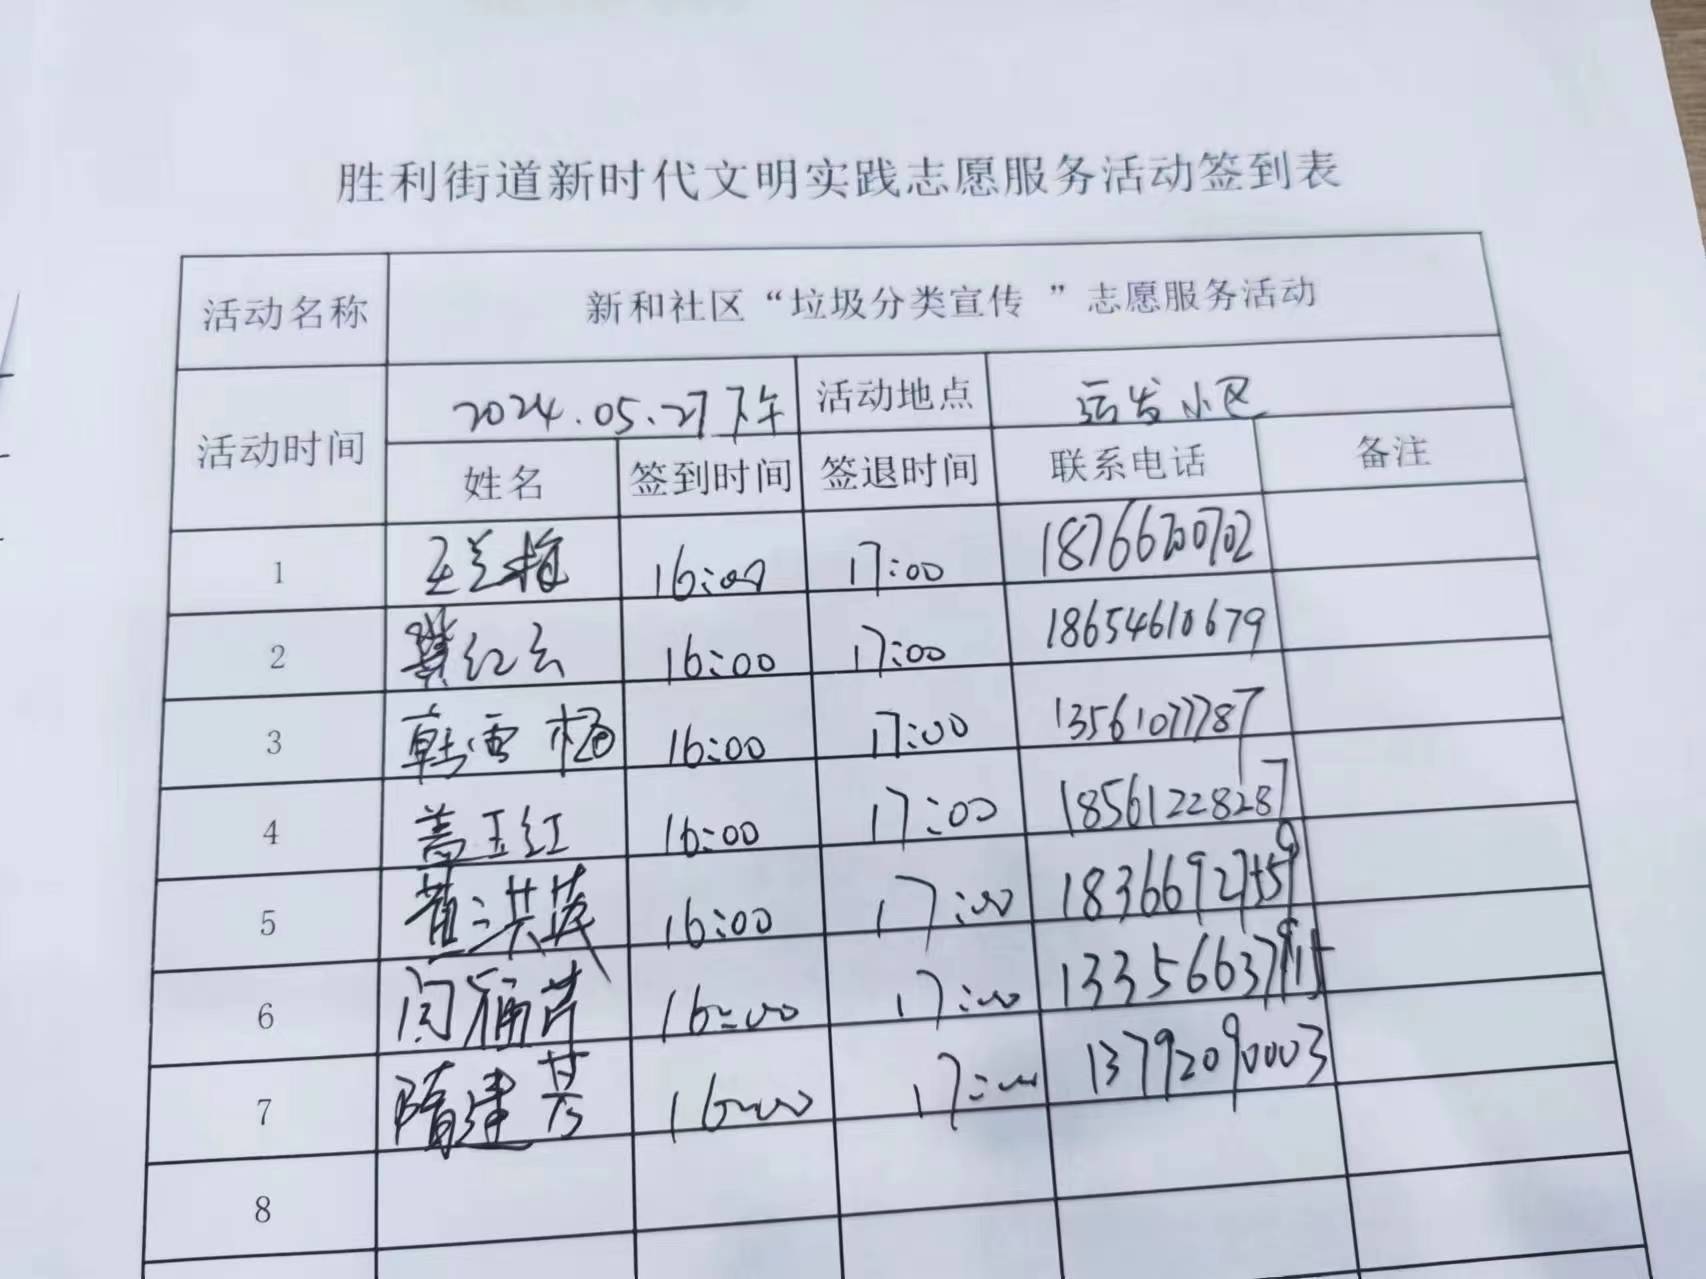 胜利街道新时代文明实践志愿服务活动签到表
活动名称 新和社区“垃圾分类宣传 ”志愿服务活动
活动时间 2024.05.27下午 活动地点 运发小区
姓名 签到时间 签退时间 联系电话 备注
1 王兰梅 16:00 17:00
2 龚红云 16:00 17:00 18654610679
3 韩雪梅 16:00 17:00 13561077787
4 盖玉红 16:00 17:00 18561228287
5 董洪英 16:00 17:00
6 闫福芹 16:00 17:00
7 隋建芳 16:00 17:00 13792090003
8